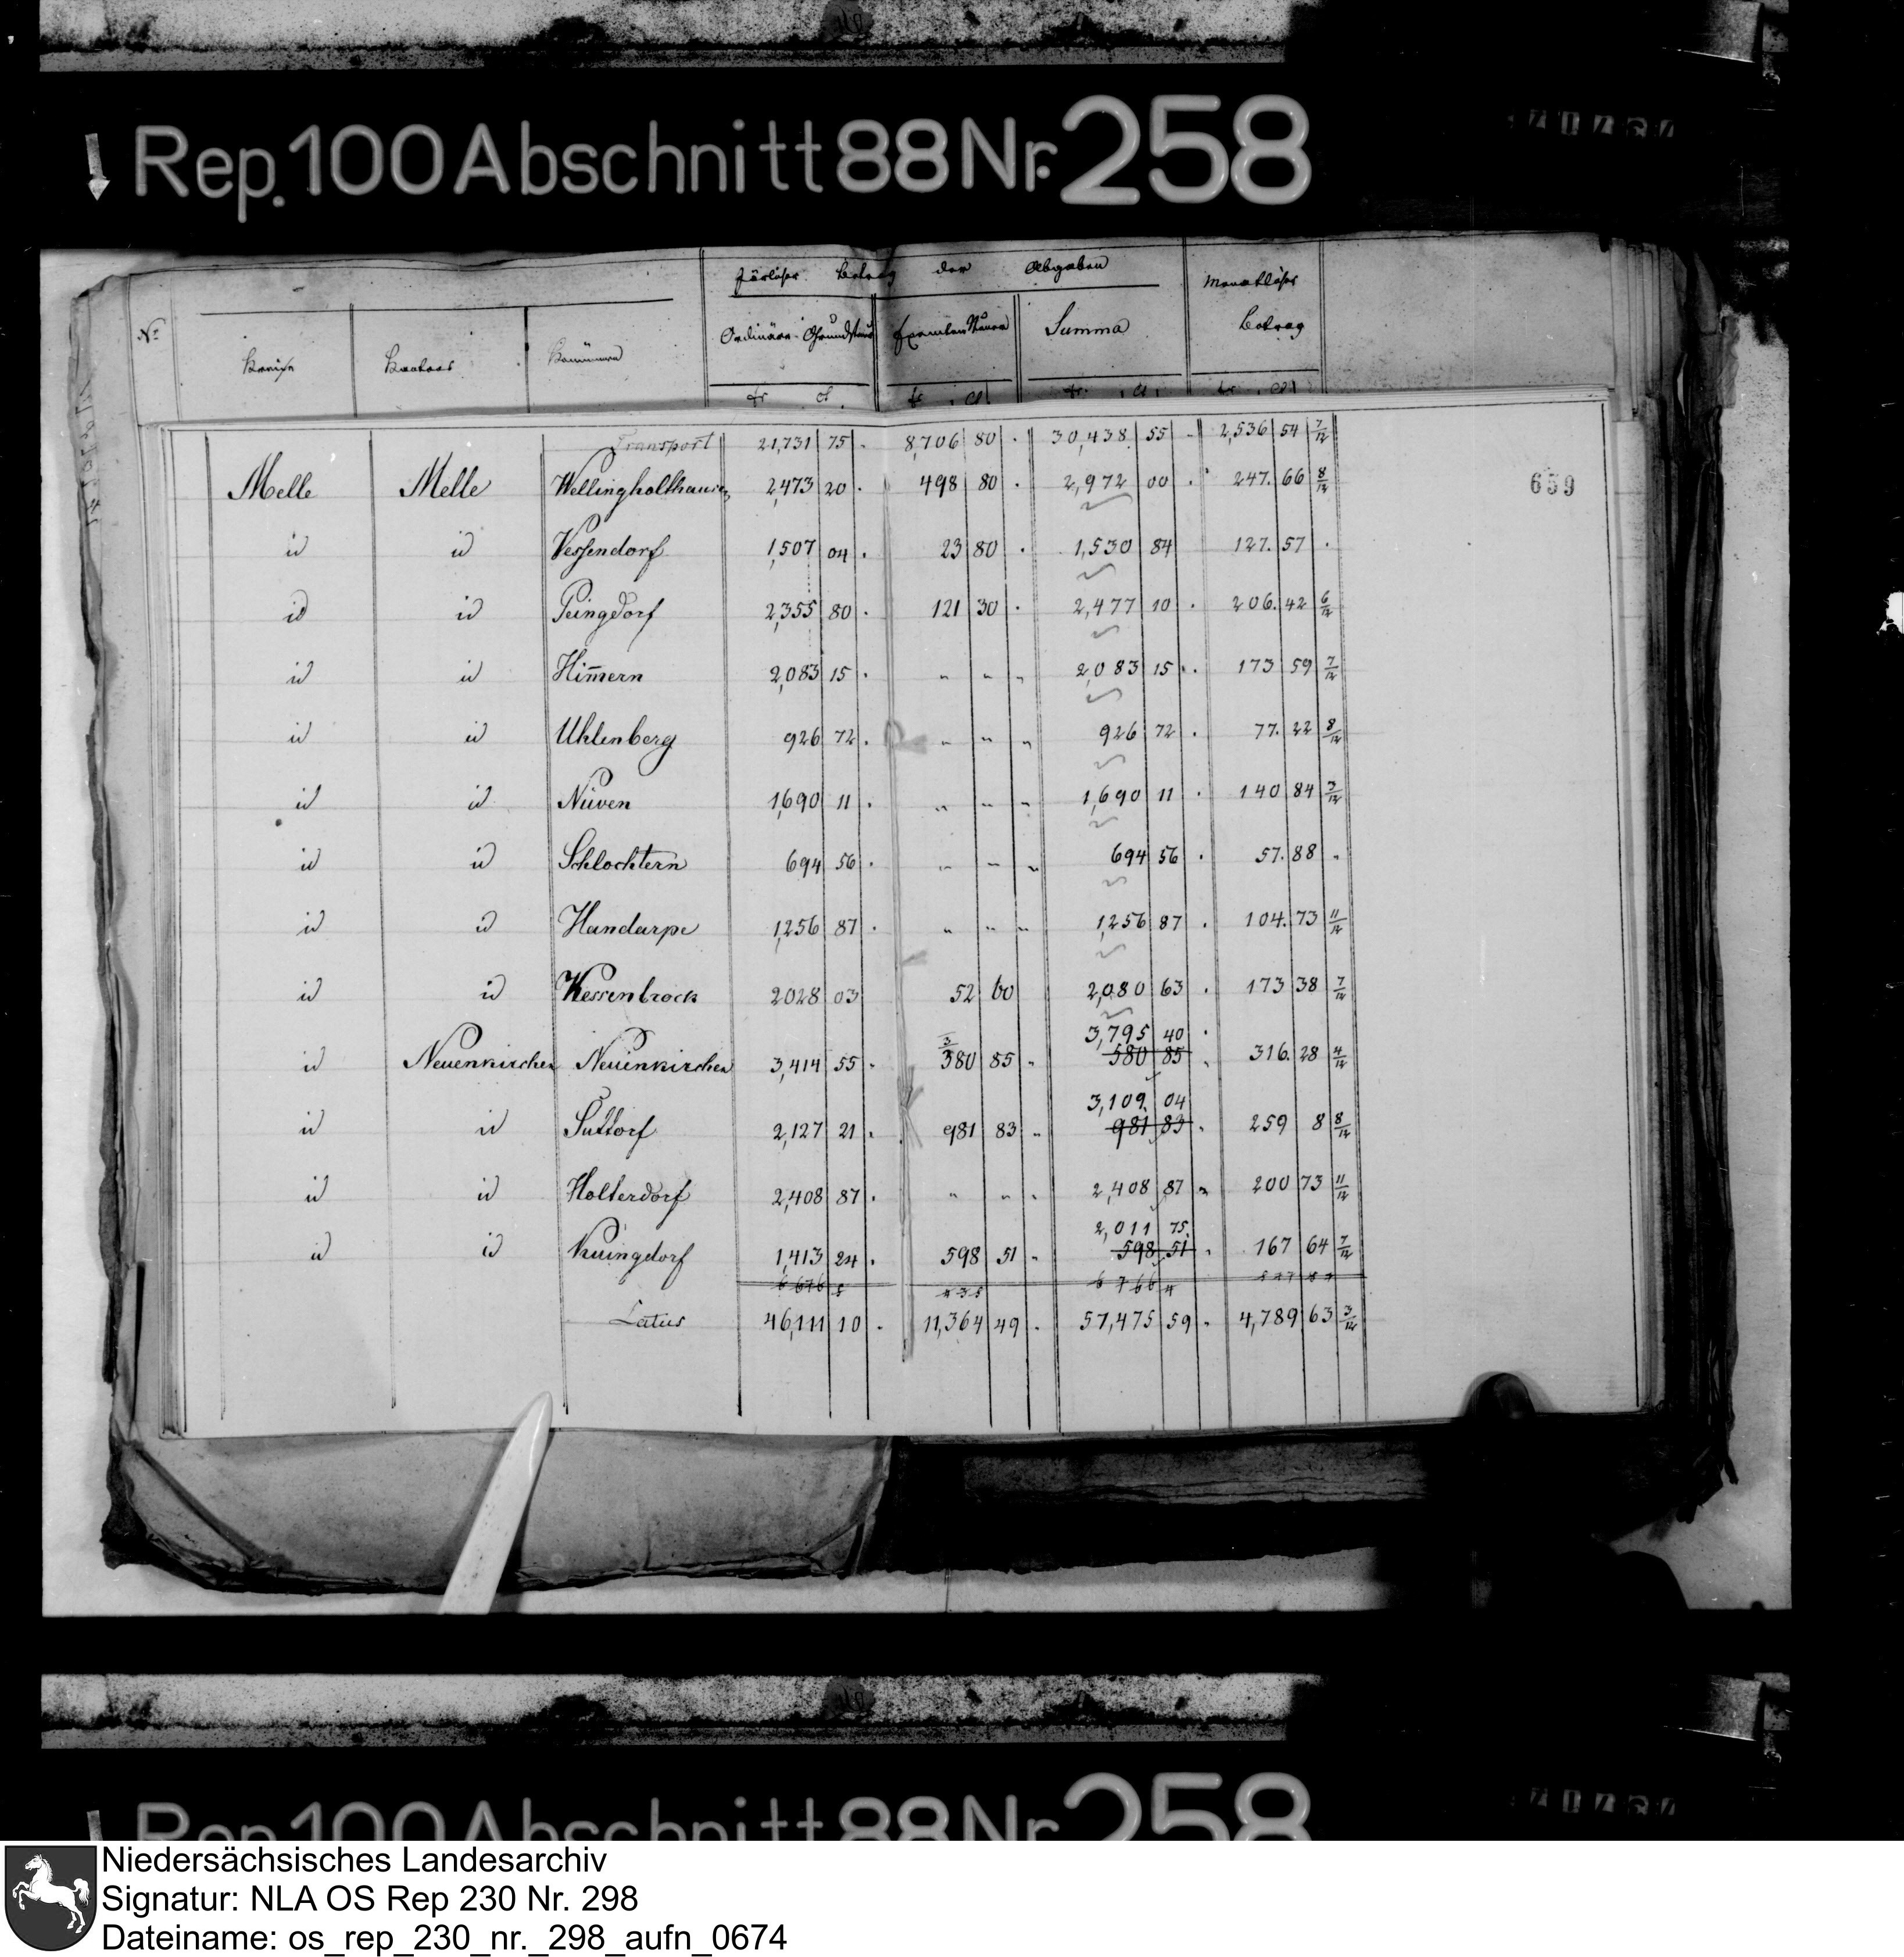 Rep. 100 Abschnitt 88 Nr. 258
Järlicher Betrag der Abgaben Monatlicher
No Kreise Kantons Kommunen Ordinäre Grundsteuer Exemten Steuer Summa Betrag
fr. ct. fr. ct. fr. ct. fr. ct.
Transport 21,731 75 . 8,706 80 . 30,438 55 .. 2,536 54 7/12
Melle Melle Wellingholthausen 2,473 20 . 498 80 . 2,972 00 . 247. 66 8/12
id id Vessendorf 1,507 04 . 23 80 . 1,530 84 127. 57 .
id id Peingdorf 2,355 80 . 121 30 . 2,477 10 . 206. 42 6/12
id id Him̄ern 2,083 15 . " " " 2,083 15 . . 173 59 7/12
id id Uhlenberg 926 72 . " " " 926 72 . 77. 22 8/12
id id Nüven 1,690 11 . " " " 1,690 11 . 140 84 3/12
id id Schlochtern 694 56 . " " " 694 56 . 57. 88 "
id id Handarpe 1,256 87 . " " " 1,256 87 . 104. 73 11/12
id id Kerrenbrock 2028 03 52 60 2,080 63 . 173 38 7/12
3,795 40 .
id Neuenkirchen Neuenkirchen 3,414 55 . 380 85 . 580 85 . 316. 28 4/12
3,109. 04
id id Suttorf 2,127 21 . 981 83 .. 981 83 . 259 8 8/12
id id Holterdorf 2,408 87 . " " . 2,408 87 " 200 73 11/12
2,011 75.
id id Küingdorf 1,413 24 . 598 51 .. 598 51 . 167 64 7/12
Latus 46,111 10 . 11,364 49 . 57,475 59 . 4,789 63 3/12
659
Rep. 100 Abschnitt 88 Nr. 258
Niedersächsisches Landesarchiv
Signatur: NLA OS Rep 230 Nr. 298
Dateiname: os_rep_230_nr._298_aufn_0674